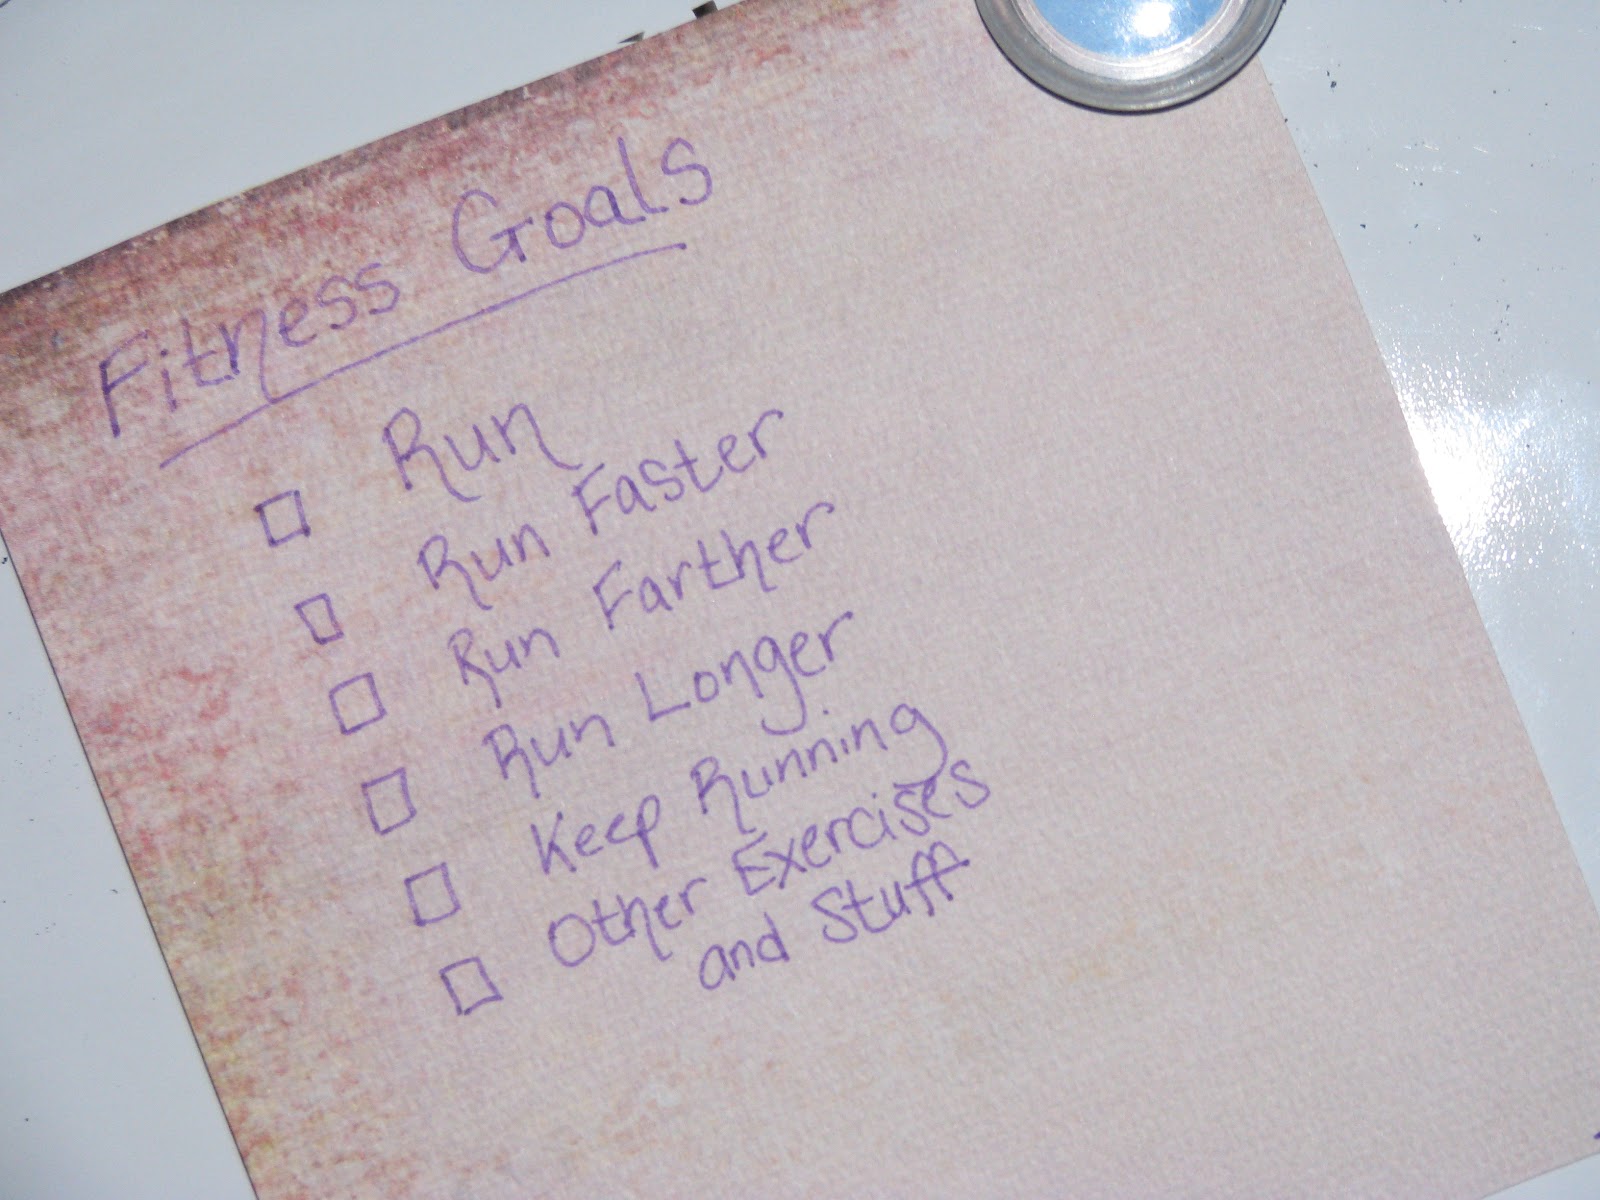 Fitness Goals
Run
Run Faster
Run Farther
Run Longer
Keep Running
Other Exercises
and Stuff